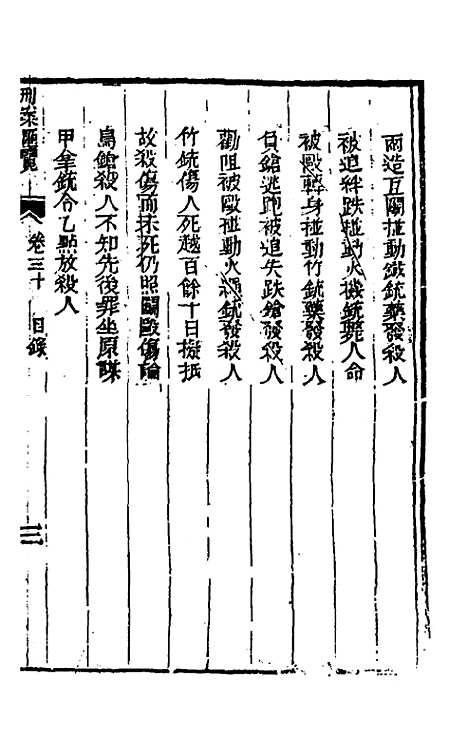 兩造互鬭掽動鐵銃藥發殺人
被追絆跌掽動火機銃斃人命
被毆轉身掽動竹銃藥發殺人
負鎗逃跑被追失跌鎗發殺人
勸阻被毆掽動火繩銃發殺人
竹銃傷人死越百餘十日擬抵
故殺傷而未死仍照鬭毆傷論
鳥鎗殺人不知先後罪坐原謀
甲拿銃令乙點放殺人
刑案匯覽
卷三十 目錄
三